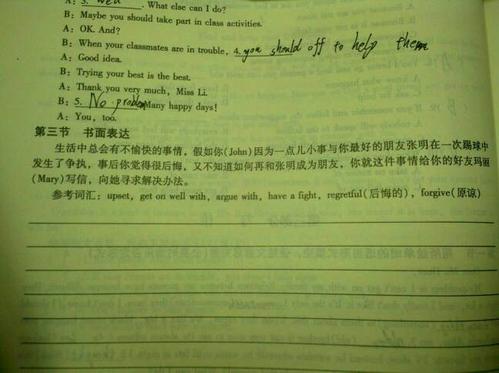 A: 3. Well. What else can I do?
B: Maybe you should take part in class activities.
A: OK. And?
B: When your classmates are in trouble, 4. you should off to help them
A: Good idea.
B: Trying your best is the best.
A: Thank you very much, Miss Li.
B: 5. No problem Many happy days!
A: You, too.
第三节 书面表达
生活中总会有不愉快的事情，假如你(John)因为一点儿小事与你最好的朋友张明在一次踢球中
发生了争执，事后你觉得很后悔，又不知道如何再和张明成为朋友，你就这件事情给你的好友玛丽
(Mary)写信，向她寻求解决办法。
参考词汇：upset, get on well with, argue with, have a fight, regretful(后悔的), forgive(原谅)